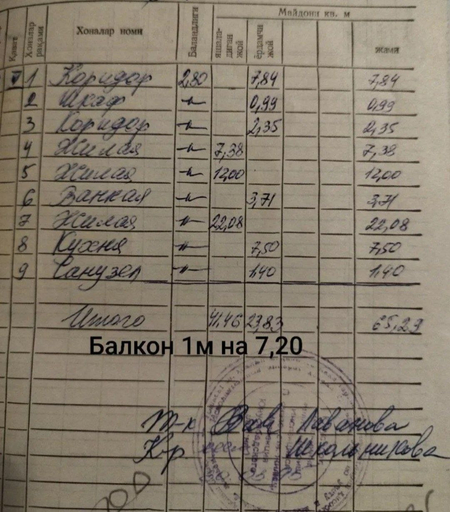 Майдони кв. м
Қават
Хоналар рақами
Хоналар номи
Баландлиги
яшайдиган жой
ёрдамчи жой
жами
1 Коридор 2,80 7,84 7,84
2 Шкаф -"- 0,99 0,99
3 Коридор -"- 2,35 2,35
4 Жилая -"- 7,38 7,38
5 Жилая -"- 12,00 12,00
6 Ванная -"- 3,71 3,71
7 Жилая -"- 22,08 22,08
8 Кухня -"- 7,50 7,50
9 Санузел -"- 1,40 1,40
Итого 41,46 23,83 65,29
Балкон 1м на 7,20
Т-к
К-р Школьникова